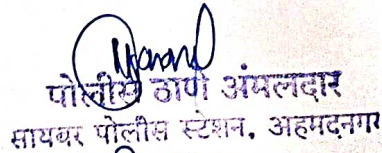 पोलीस ठाणे अंमलदार
सायबर पोलीस स्टेशन, अहमदनगर